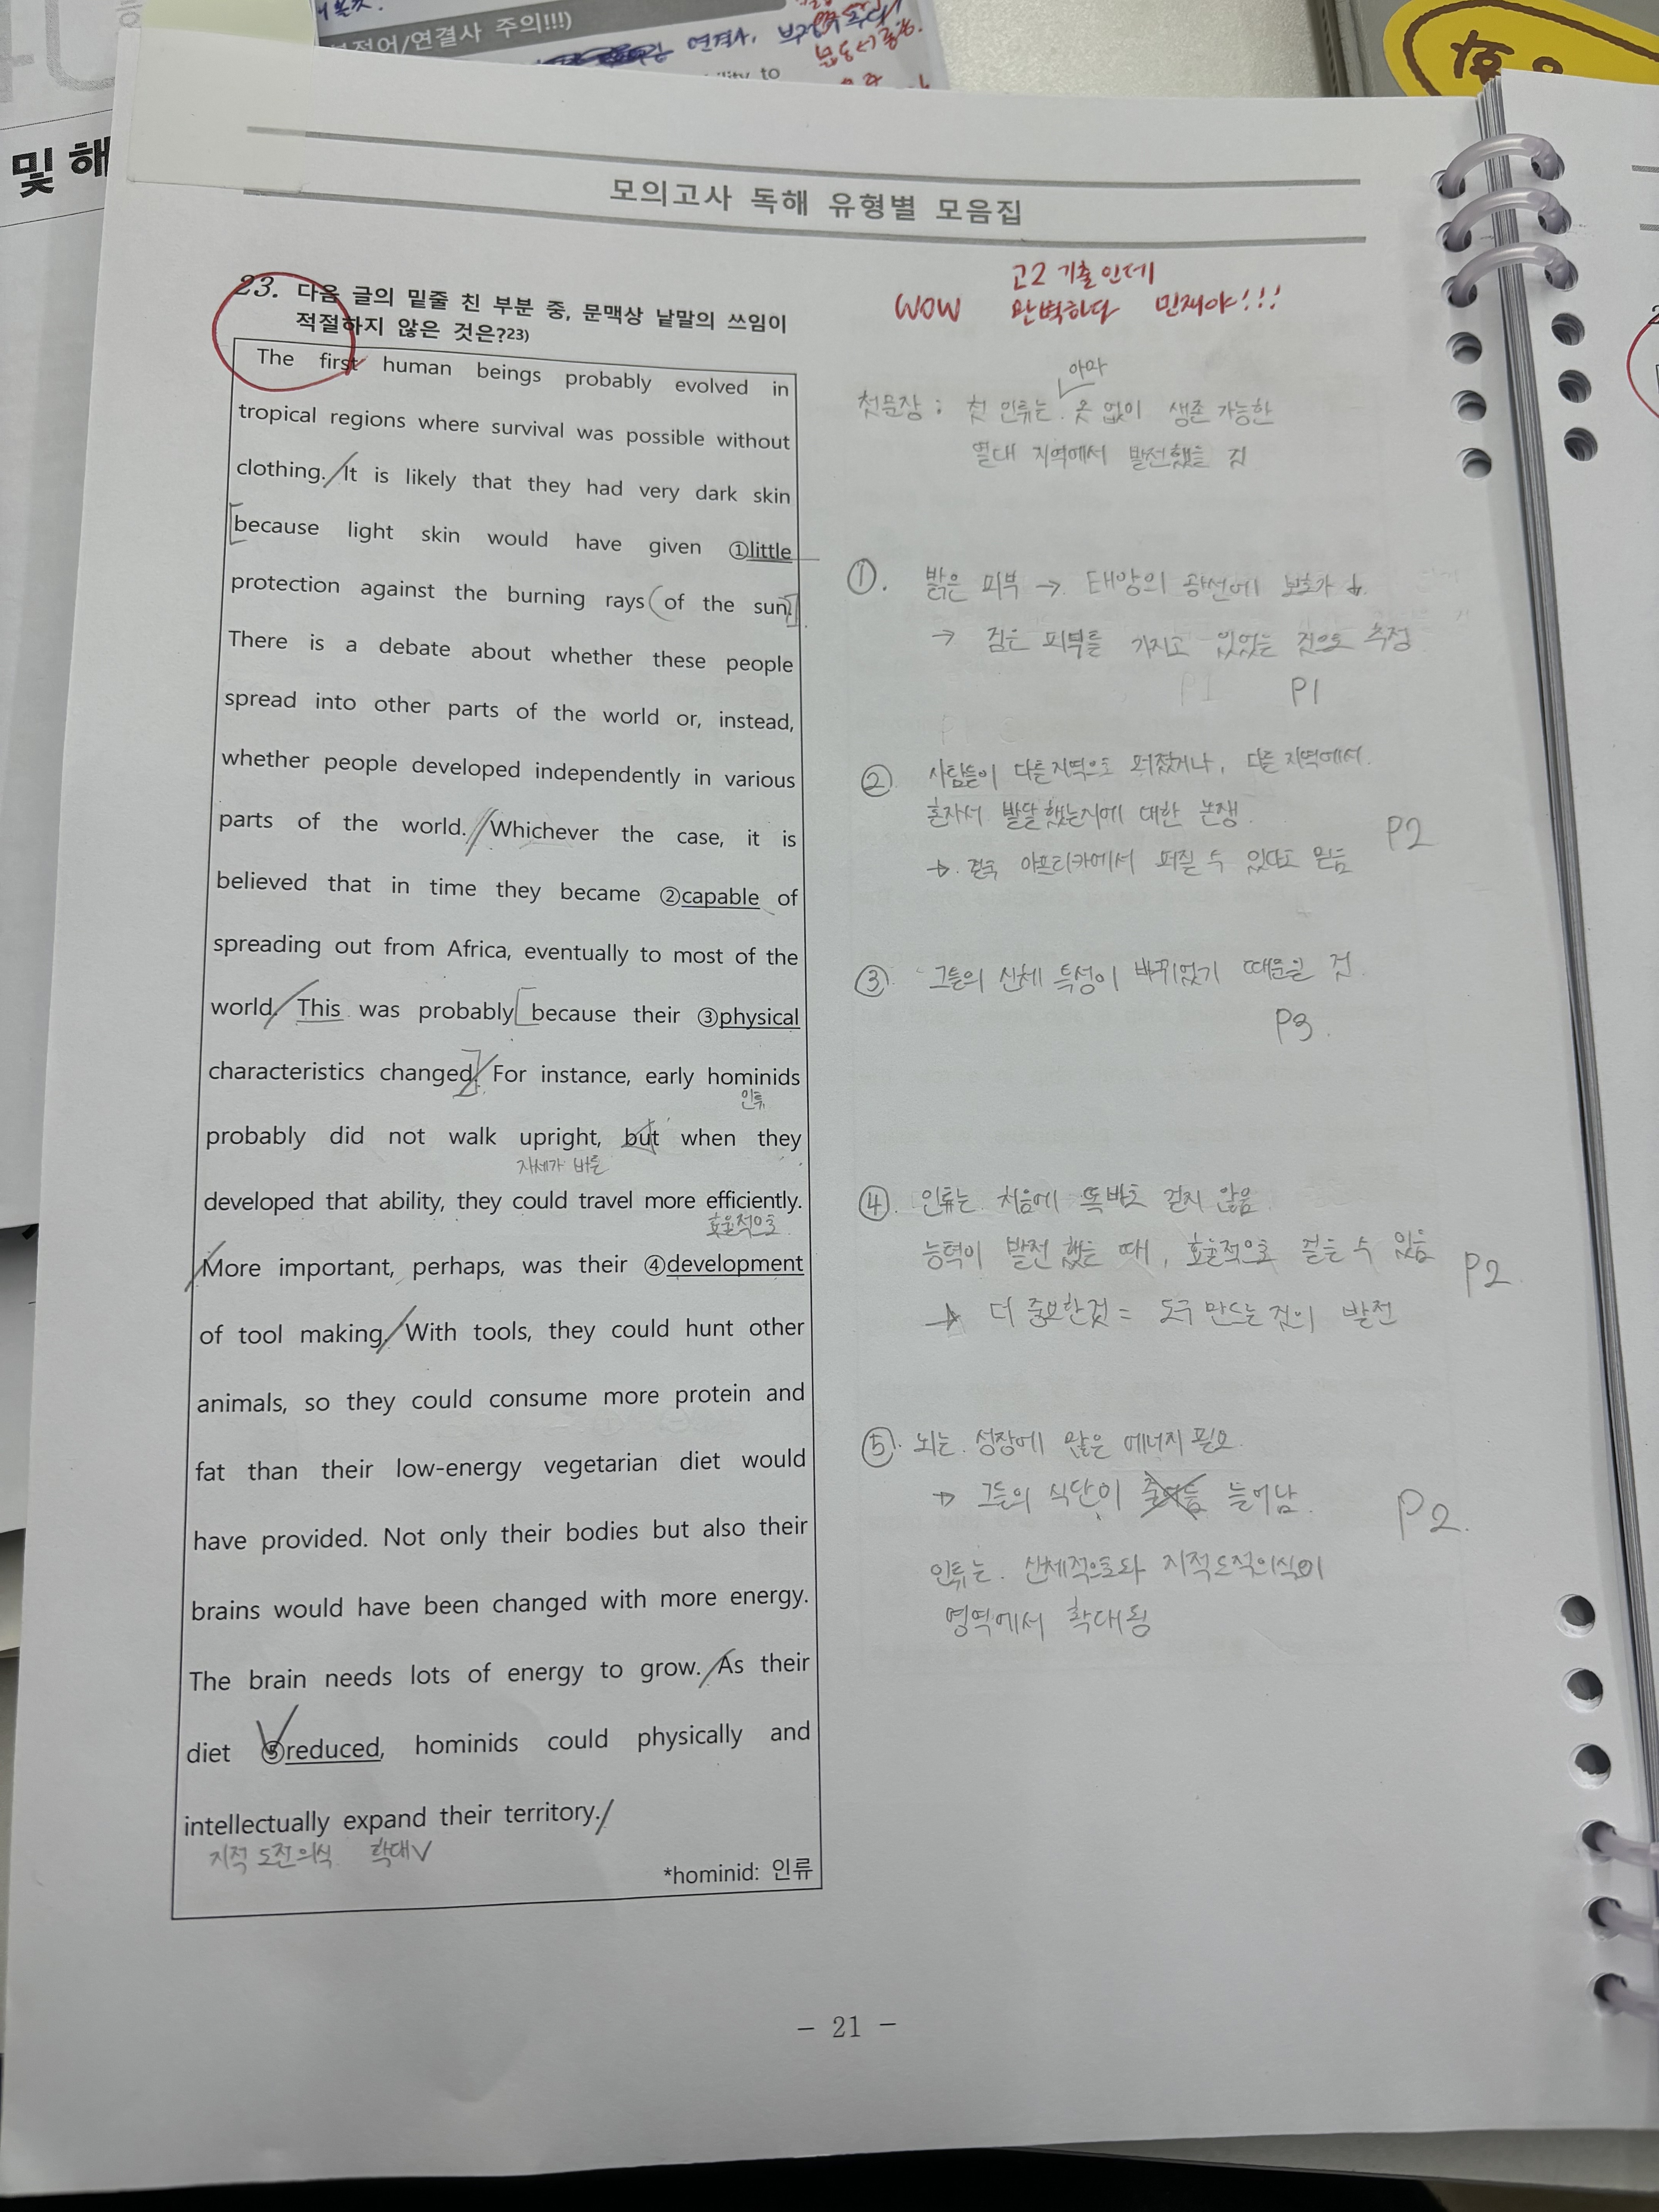 부정어/연결사 주의!!!)
연결사,
및 해
모의고사 독해 유형별 모음집
고2 기출인데
WOW 완벽하다 민재야!!!
23. 다음 글의 밑줄 친 부분 중, 문맥상 낱말의 쓰임이
적절하지 않은 것은?23)
The first human beings probably evolved in
tropical regions where survival was possible without
clothing. It is likely that they had very dark skin
because light skin would have given ①little
protection against the burning rays of the sun.
There is a debate about whether these people
spread into other parts of the world or, instead,
whether people developed independently in various
parts of the world. Whichever the case, it is
believed that in time they became ②capable of
spreading out from Africa, eventually to most of the
world. This was probably because their ③physical
characteristics changed. For instance, early hominids
인류
probably did not walk upright, but when they
자세가 바른
developed that ability, they could travel more efficiently.
효율적으로
More important, perhaps, was their ④development
of tool making. With tools, they could hunt other
animals, so they could consume more protein and
fat than their low-energy vegetarian diet would
have provided. Not only their bodies but also their
brains would have been changed with more energy.
The brain needs lots of energy to grow. As their
diet ⑤reduced, hominids could physically and
intellectually expand their territory.
지적 도전의식 확대
*hominid: 인류
아마
첫문장 ; 첫 인류는 옷 없이 생존 가능한
열대 지역에서 발전했을 것
①. 밝은 피부 → 태양의 광선에 보호가 ↓.
→ 검은 피부를 가지고 있었는 것으로 추정
P1
② 사람들이 다른지역으로 퍼졌거나, 다른 지역에서
혼자서 발달했는지에 대한 논쟁.
→ 결국 아프리카에서 퍼질 수 있다고 믿음
P2
③ 그들의 신체 특성이 바뀌었기 때문일 것
P3.
④. 인류는 처음에 똑바로 걷지 않음
능력이 발전 했을 때, 효율적으로 걸을 수 있음
P2
→ 더 중요한것 = 도구 만드는 것의 발전
⑤. 뇌는 성장에 많은 에너지 필요.
→ 그들의 식단이 늘어남.
P2.
인류는 신체적으로와 지적도적의식이
영역에서 확대됨
- 21 -